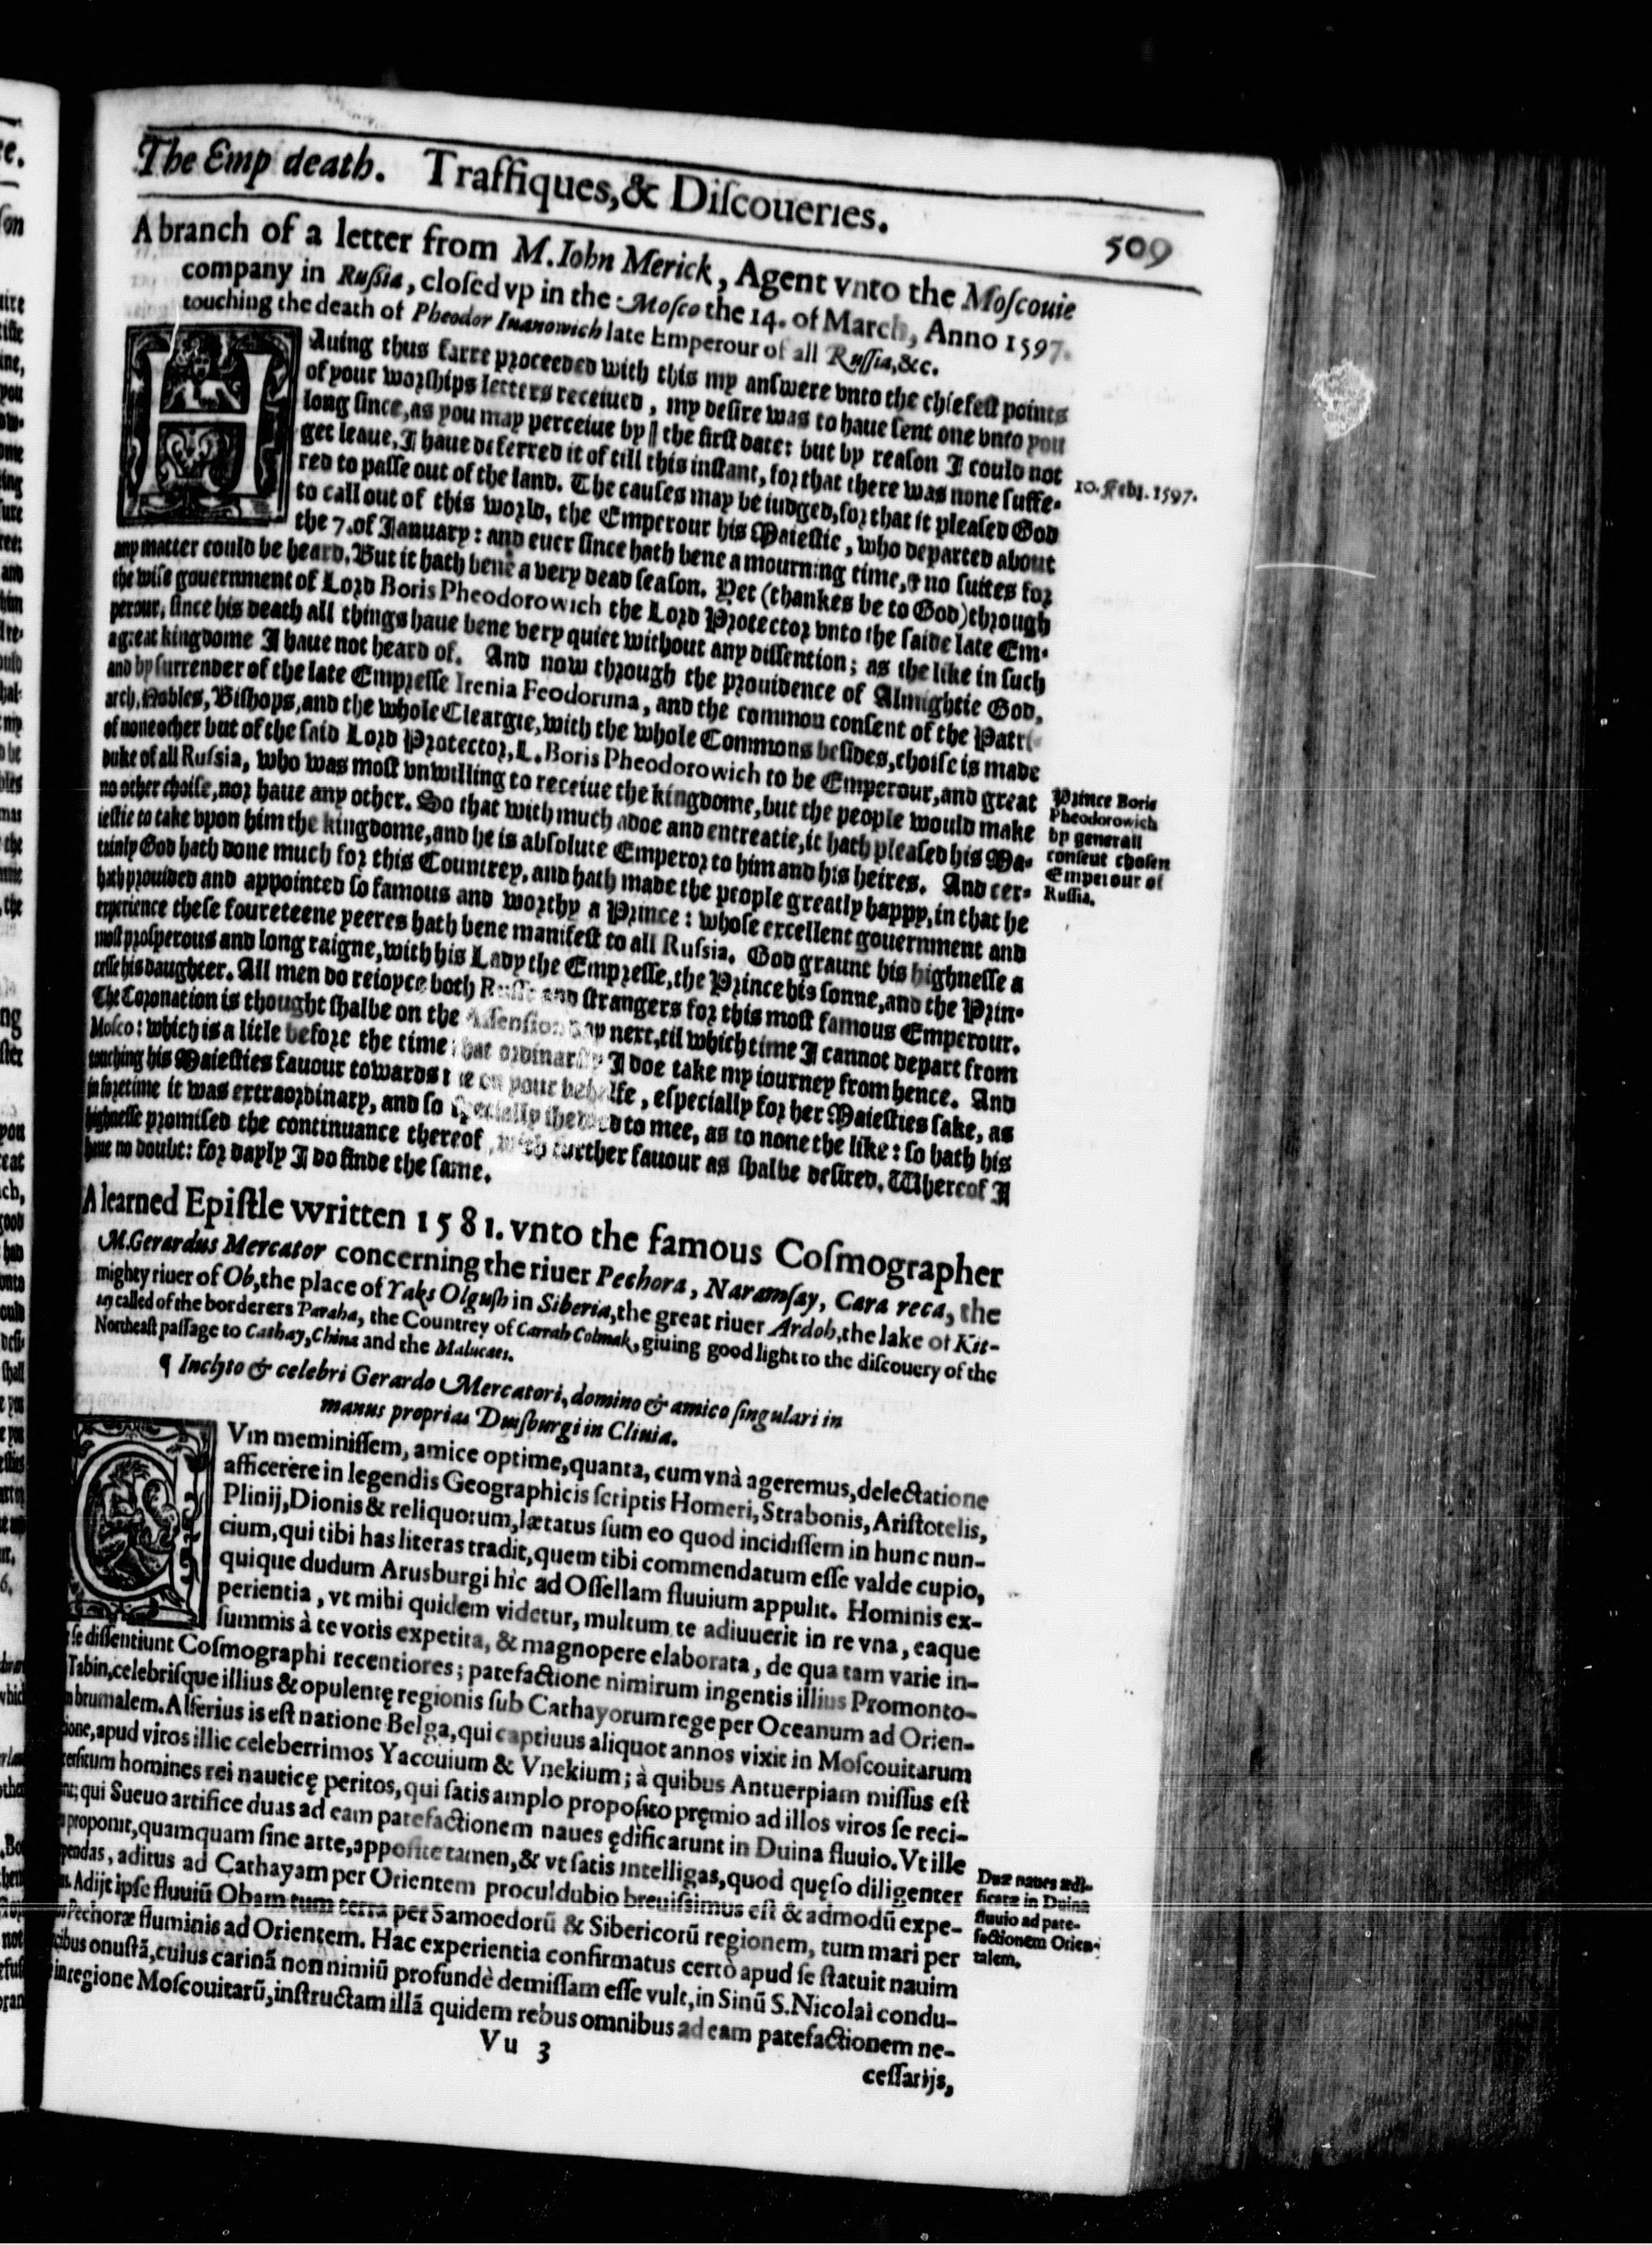 The Emp death. Traffiques, & Diſcoueries. 509
A branch of a letter from M. Iohn Merick, Agent vnto the Moſcouie
company in Ruſsia, cloſed vp in the Moſco the 14. of March, Anno 1597.
touching the death of Pheodor Iuanowich late Emperour of all Ruſſia, &c.
HAuing thus farre proceeded with this my anſwere vnto the chiefeſt points
of your worſhips letters receiued, my deſire was to haue ſent one vnto you
long ſince, as you may perceiue by || the firſt date: but by reaſon I could not
get leaue, I haue deferred it of till this inſtant, for that there was none ſuffe-
red to paſſe out of the land. The cauſes may be iudged, for that it pleaſed God
to call out of this world, the Emperour his Maieſtie, who departed about
the 7. of Ianuary: and euer ſince hath bene a mourning time, & no ſuites for
any matter could be heard. But it hath bene a very dead ſeaſon. Yet (thankes be to God) through
the wiſe gouernment of Lord Boris Pheodorowich the Lord Protector vnto the ſaide late Em-
perour, ſince his death all things haue bene very quiet without any diſſention; as the like in ſuch
a great kingdome I haue not heard of. And now through the prouidence of Almightie God,
and by ſurrender of the late Empreſſe Irenia Feodoruna, and the common conſent of the Patri-
arch, Nobles, Biſhops, and the whole Cleargie, with the whole Commons beſides, choiſe is made
of none other but of the ſaid Lord Protector, L. Boris Pheodorowich to be Emperour, and great
duke of all Ruſsia, who was moſt vnwilling to receiue the kingdome, but the people would make
no other choiſe, nor haue any other. So that with much adoe and entreatie, it hath pleaſed his Ma-
ieſtie to take vpon him the kingdome, and he is abſolute Emperor to him and his heires. And cer-
tainly God hath done much for this Countrey, and hath made the people greatly happy, in that he
hath prouided and appointed ſo famous and worthy a Prince: whoſe excellent gouernment and
experience theſe foureteene yeeres hath bene manifeſt to all Ruſsia. God graunt his highneſſe a
moſt proſperous and long raigne, with his Lady the Empreſſe, the Prince his ſonne, and the Prin-
ceſſe his daughter. All men do reioyce both Ruſſe and ſtrangers for this moſt famous Emperour.
The Coronation is thought ſhalbe on the Aſſenſion day next, til which time I cannot depart from
Moſco: which is a litle before the time that ordinarily I doe take my iourney from hence. And
touching his Maieſties fauour towards me on your behalfe, eſpecially for her Maieſties ſake, as
in foretime it was extraordinary, and ſo ſpecially ſhewed to mee, as to none the like: ſo hath his
highneſſe promiſed the continuance thereof, with further fauour as ſhalbe deſired. Whereof I
haue no doubt: for dayly I do finde the ſame.
10. Febr. 1597.
Prince Boris
Pheodorowich
by generall
conſent choſen
Emperour of
Ruſſia.
A learned Epiſtle written 1581. vnto the famous Coſmographer
M. Gerardus Mercator concerning the riuer Pechora, Naramſay, Cara reca, the
mighty riuer of Ob, the place of Yaks Olguſh in Siberia, the great riuer Ardoh, the lake of Kit-
ay called of the borderers Paraha, the Countrey of Carrah Colmak, giuing good light to the diſcouery of the
Northeaſt paſſage to Cathay, China and the Malucaes.
¶ Inclyto & celebri Gerardo Mercatori, domino & amico ſingulari in
manus proprias Duisburgi in Cliuia.
CVm meminiſſem, amice optime, quanta, cum vnà ageremus, delectatione
afficerere in legendis Geographicis ſcriptis Homeri, Strabonis, Ariſtotelis,
Plinij, Dionis & reliquorum, lætatus ſum eo quod incidiſſem in hunc nun-
cium, qui tibi has literas tradit, quem tibi commendatum eſſe valde cupio,
quique dudum Arusburgi hîc ad Oſſellam fluuium appulit. Hominis ex-
perientia, vt mihi quidem videtur, multum te adiuuerit in re vna, eaque
ſummis à te votis expetita, & magnopere elaborata, de qua tam varie in-
ter ſe diſſentiunt Coſmographi recentiores; patefactione nimirum ingentis illius Promonto-
Tabin, celebriſque illius & opulentę regionis ſub Cathayorum rege per Oceanum ad Orien-
brumalem. Alferius is eſt natione Belga, qui captiuus aliquot annos vixit in Moſcouitarum
ditione, apud viros illic celeberrimos Yaccuium & Vnekium; à quibus Antuerpiam miſſus eſt
accerſitum homines rei nauticę peritos, qui ſatis amplo propoſito pręmio ad illos viros ſe reci-
qui Sueuo artifice duas ad eam patefactionem naues ędificarunt in Duina fluuio. Vt ille
proponit, quamquam ſine arte, appoſite tamen, & vt ſatis intelligas, quod quęſo diligenter
perpendas, aditus ad Cathayam per Orientem proculdubio breuiſsimus eſt & admodū expe-
Adijt ipſe fluuiū Obam tum terra per Samoedorū & Sibericorū regionem, tum mari per
Pechoræ fluminis ad Orientem. Hac experientia confirmatus certò apud ſe ſtatuit nauim
onuſtā, cuius carinā non nimiū profundè demiſſam eſſe vult, in Sinū S. Nicolai condu-
in regione Moſcouitarū, inſtructam illā quidem rebus omnibus ad eam patefactionem ne-
Duæ naues ædi-
ficatæ in Duina
fluuio ad pate-
factionem Orien-
talem.
Vu 3
ceſſarijs,